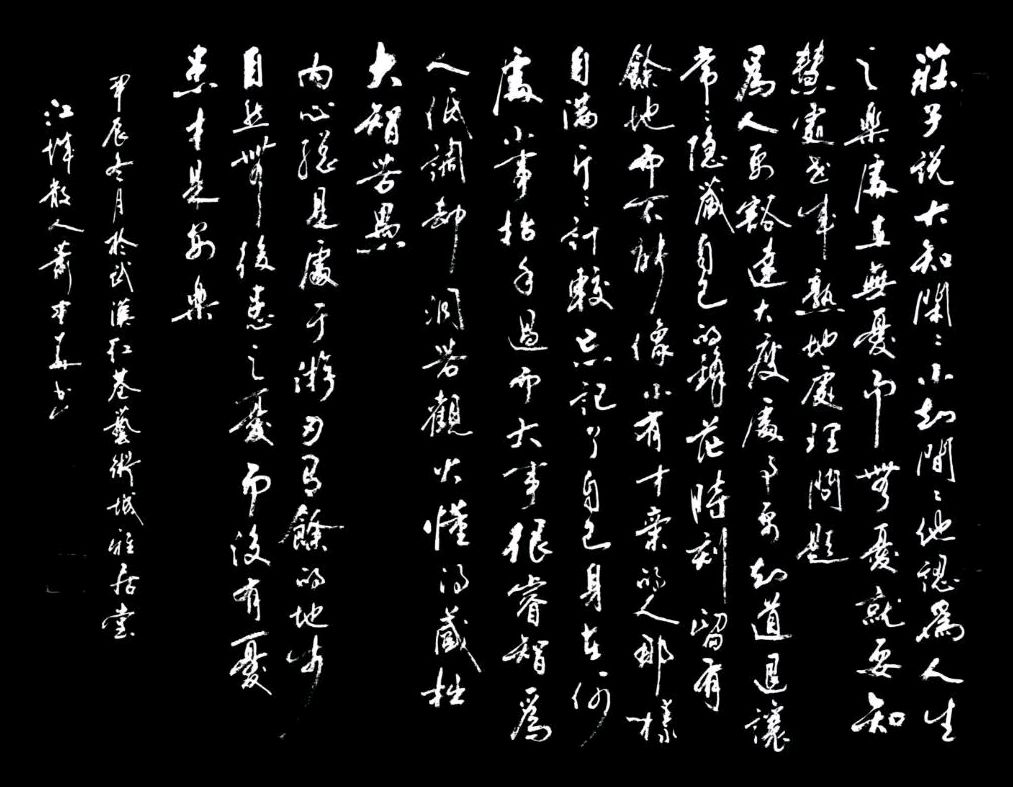 莊子説大知閑〻小知間〻他認爲人生
之樂處在無憂而無憂就要知
慧處世成熟地處理問題
爲人要豁達大度處事要知道退讓
常〻隱藏自己的鋒芒時刻留有
餘地而不能像小有才氣的人那樣
自滿斤〻計較忘記了自己身在何
處小事指手過而大事很睿智爲
人低調却洞若觀火懂得藏拙
大智若愚
内心總是處于游刃有餘的地步
自然無後患之憂而没有憂
患才是別樂
甲辰冬月於武漢紅巷藝術城雅居堂
江城散人蕭本書